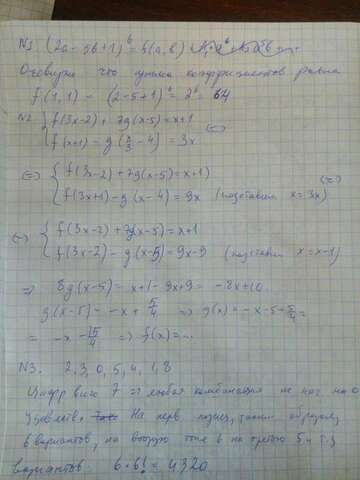 N1 (2a-5b+1)^6 = f(a,b)
Очевидно что сумма коэффициентов равна
f(1,1) - (2-5+1)^6 = 2^6 = 64
N2 { f(3x-2) + 7g(x-5) = x+1
f(x+1) - g(x/3 - 4) = 3x <=>
<=> { f(3x-2) + 7g(x-5) = x+1
f(3x+1) - g(x-4) = 9x (подставим x=3x) <=>
<=> { f(3x-2) + 7g(x-5) = x+1
f(3x-2) - g(x-5) = 9x-9 (подставим x=x-1)
=> 8g(x-5) = x+1-9x+9 = -8x+10
g(x-5) = -x + 5/4 => g(x) = -x-5+5/4 =
= -x - 15/4 => f(x) = ...
N3. 2, 3, 0, 5, 4, 1, 8
Цифр всего 7 => любая комбинация не на 0
На перв позиц, таким образом,
6 вариантов, на вторую тоже 6 на третью 5 и т.д
вариантов. 6·6! = 4320